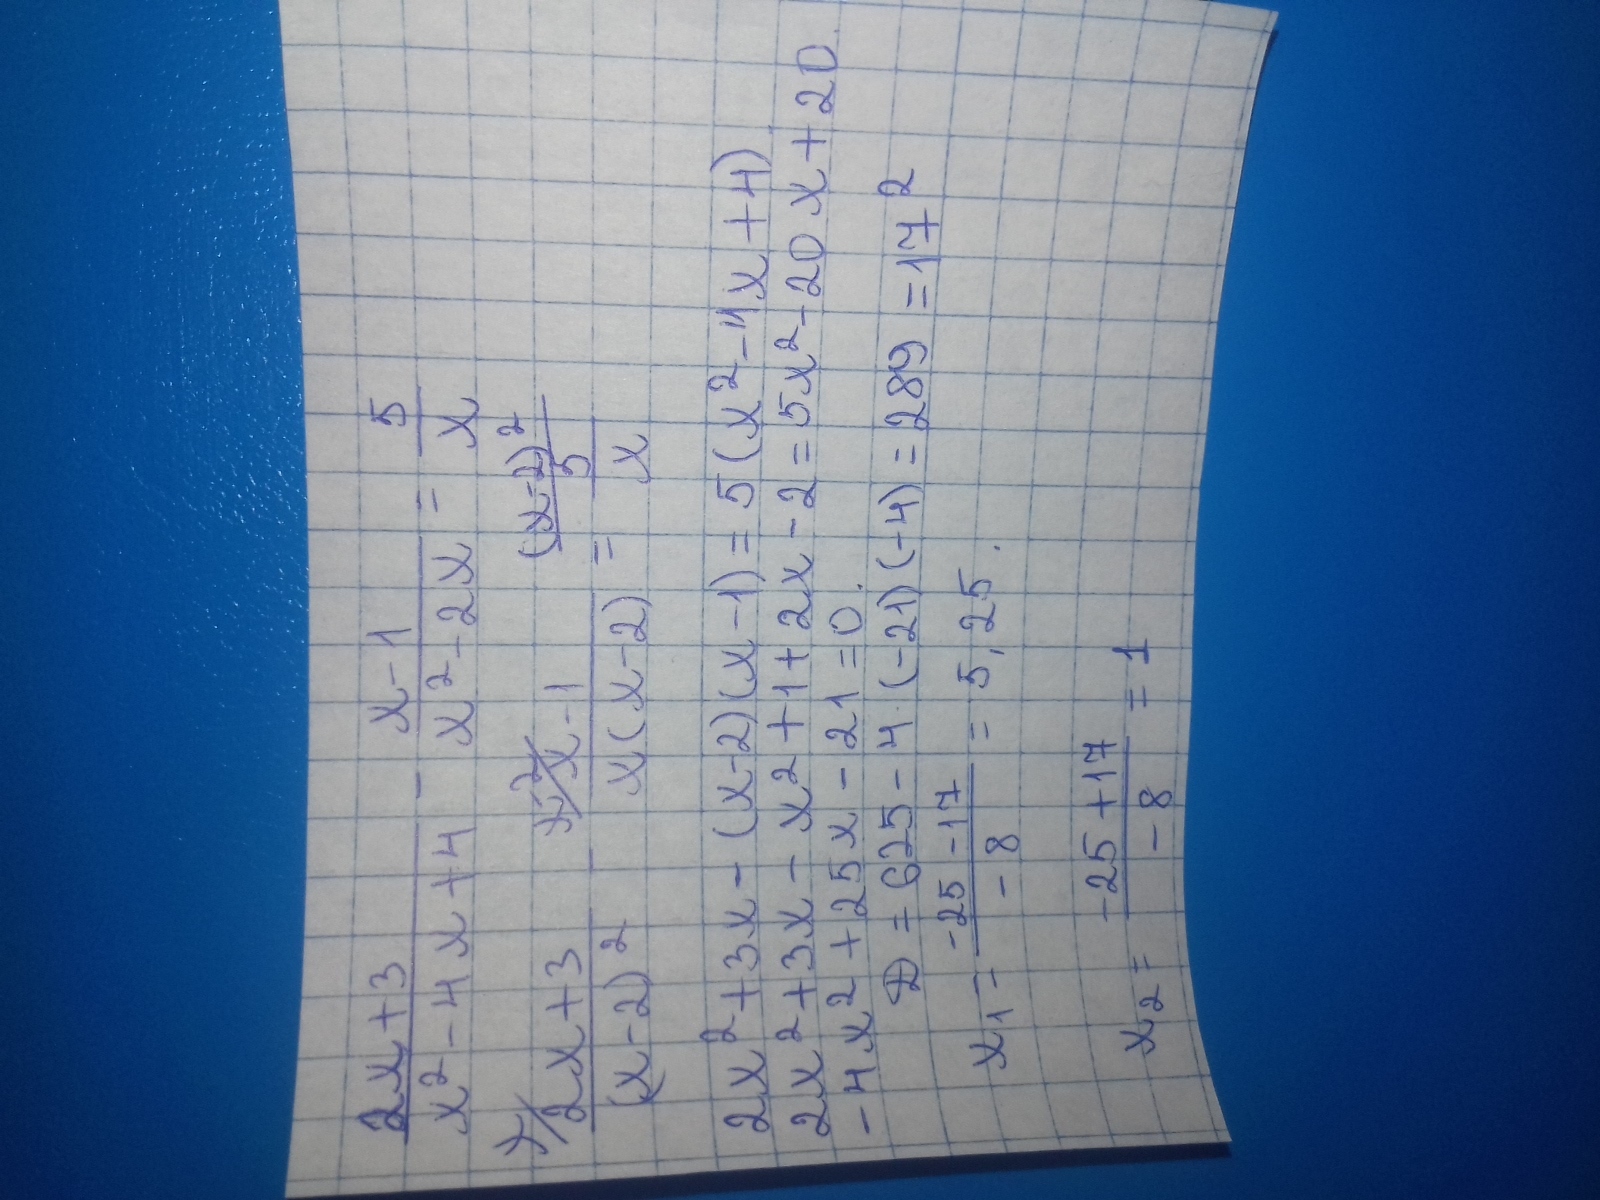 (2x+3)/(x²-4x+4) - (x-1)/(x²-2x) = 5/x
x/ (2x+3)/(x-2)² - x-2/ (x-1)/(x(x-2)) = (x-2)²/ 5/x
2x²+3x-(x-2)(x-1)=5(x²-4x+4)
2x²+3x-x²+1+2x-2=5x²-20x+20
-4x²+25x-21=0.
D=625-4·(-21)(-4)=289=17²
x₁= (-25-17)/(-8) = 5,25.
x₂= (-25+17)/(-8) = 1